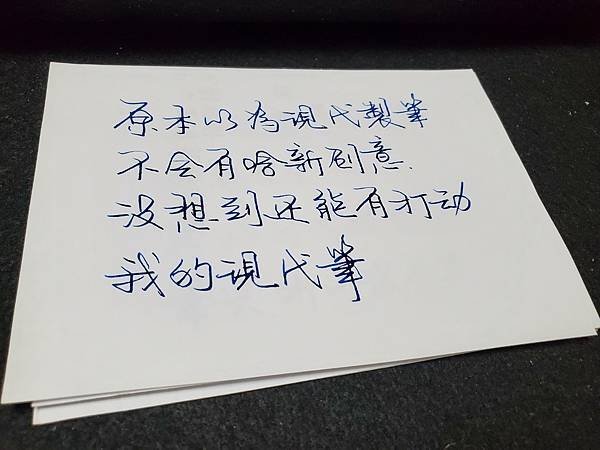 原本以為現代製筆
不会有啥新创意.
没想到还能有打动
我的現代筆